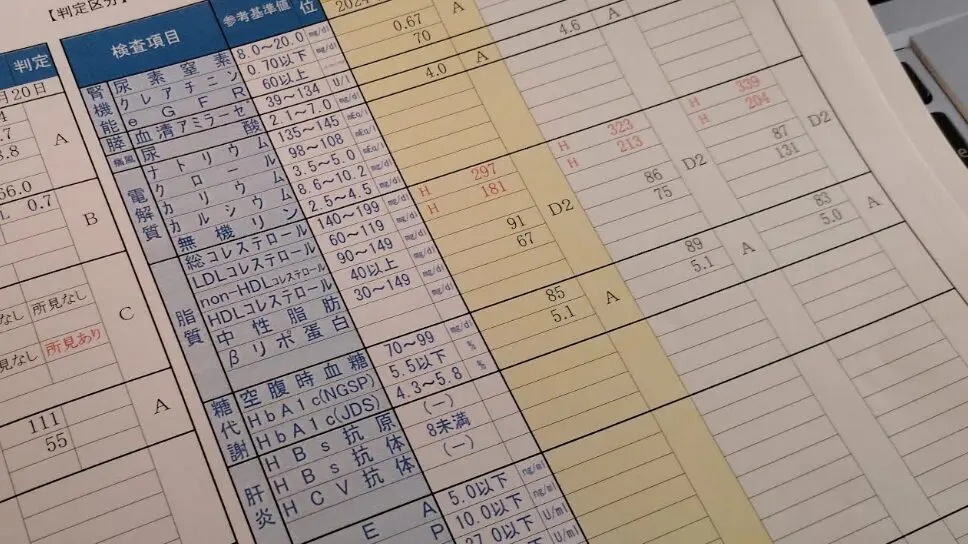 【判定区分】
検査項目 参考基準値 位 2024
腎機能 尿素窒素 8.0～20.0 mg/dl
クレアチニン 0.70以下 mg/dl 0.67 A
eGFR 60以上 70
膵 血清アミラーゼ 39～134 U/l
痛風 尿酸 2.1～7.0 mg/dl 4.0 A 4.6 A
電解質 ナトリウム 135～145 mEq/l
クロール 98～108 mEq/l
カリウム 3.5～5.0 mEq/l
カルシウム 8.6～10.2 mg/dl
無機リン 2.5～4.5 mg/dl
脂質 総コレステロール 140～199 mg/dl H 297 H 323 H 339
LDLコレステロール 60～119 mg/dl H 181 H 213 H 204
non-HDLコレステロール 90～149 mg/dl
HDLコレステロール 40以上 mg/dl 91 86 87
中性脂肪 30～149 mg/dl 67 75 131
D2 D2 D2
βリポ蛋白
糖代謝 空腹時血糖 70～99 mg/dl 85 89 83
HbA1c(NGSP) 5.5以下 % 5.1 5.1 5.0
A A A
HbA1c(JDS) 4.3～5.8 %
肝炎 HBs抗原 (－)
HBs抗体 8未満
HCV抗体 (－)
E A 5.0以下 ng/ml
P 10.0以下 ng/ml
37.0以下 U/ml
U/ml
判定
月20日
4
.7
3.8
A
66.0
L 0.7
B
なし 所見なし
見なし 所見あり
C
111
55
A